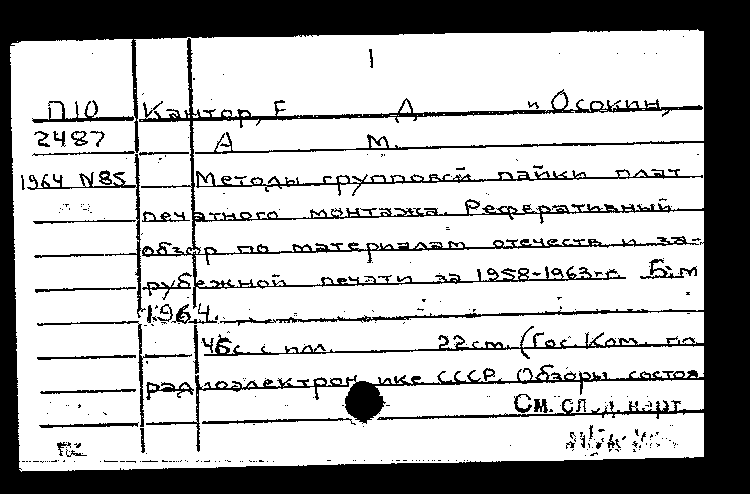 1
П10 Кантор, Е Д и Осокин,
2487 А М.
1964 N85 Методы групповой пайки плат
печатного монтажа. Реферативный
обзор по материалам отечеств. и за-
рубежной печати за 1958-1963 гг. Б.м
1964.
46с. с илл. 22см. (Гос. Ком. по
радиоэлектронике СССР. Обзоры состоя
См. сл. д. карт.